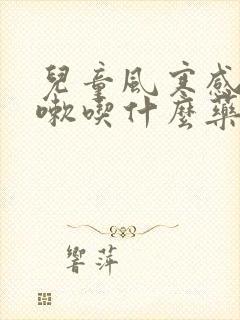 兒童風寒感
嗽喫什麼藥
響萍